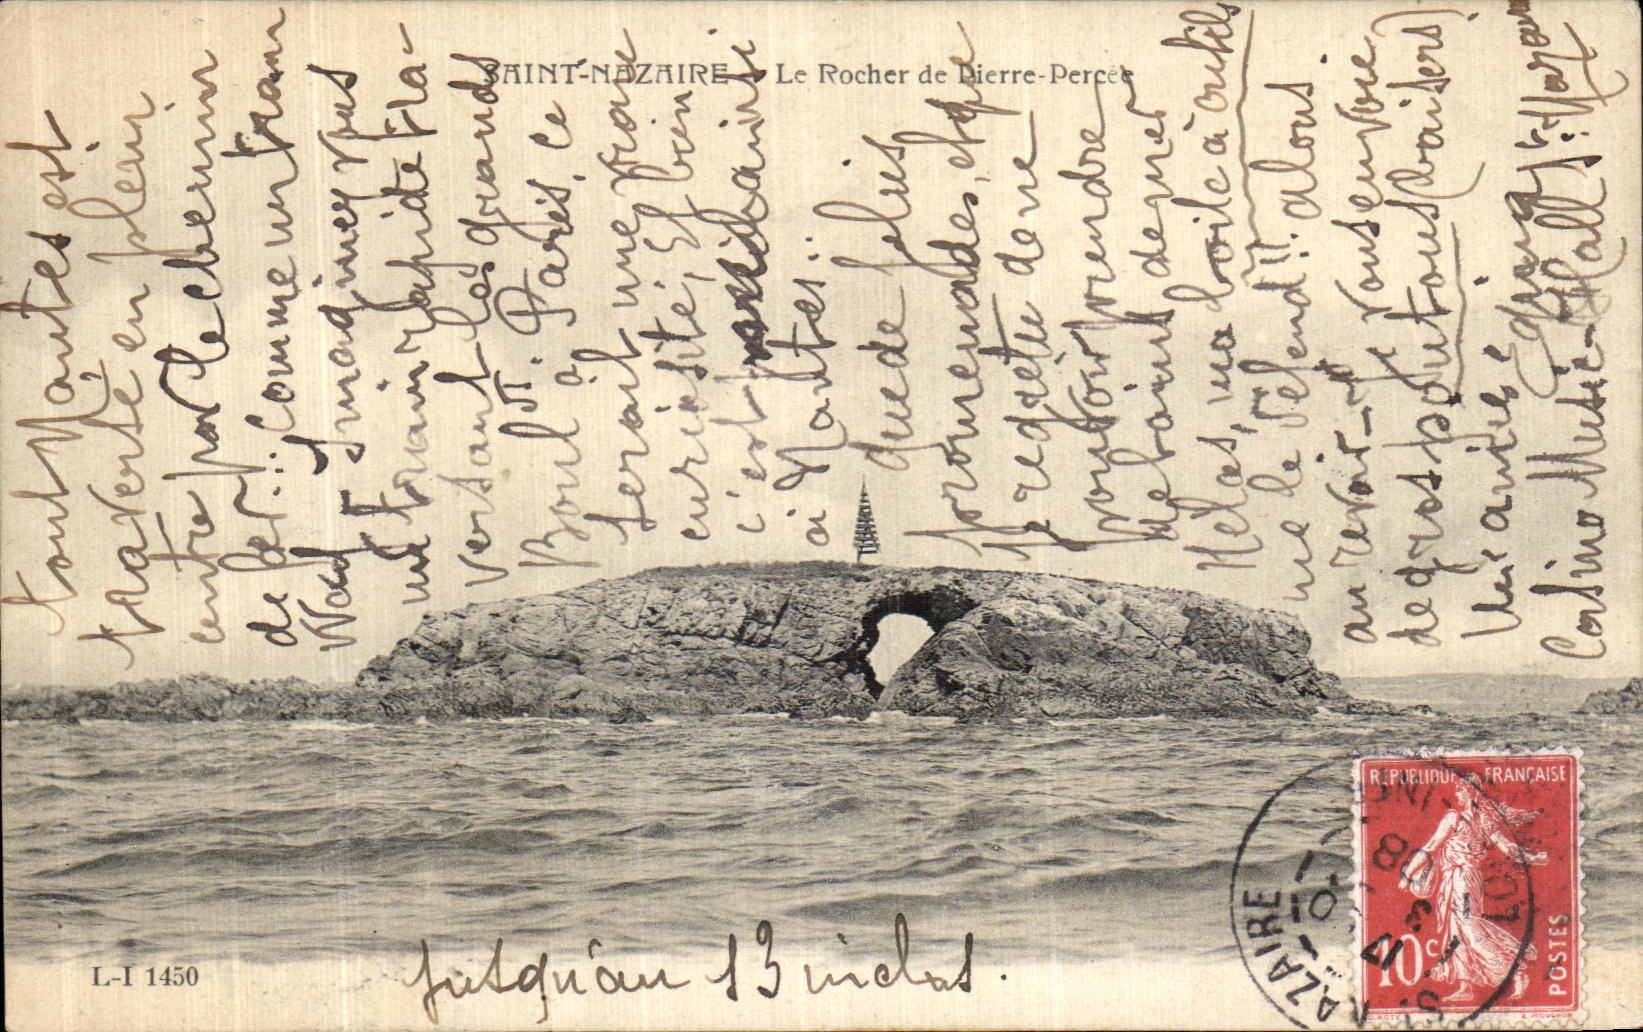 SAINT-NAZAIRE — Le Rocher de Pierre-Percée
tout Nantes est
traversé en plein
centre par le chemin
de fer... Comme un tram
Wad Imaginez vous
un train rapide tra-
versant les grands
Bould. Paris, ce
serait une vraie
curiosité, Et bien
c'est ainsi
à Nantes..
que de plus
promenades, et que
je regrette de ne
pouvoir prendre
de bains de mer
Hélas, ma boîte à outils
me le défend !! alons.
au revoir — Je vous envoie
de gros poutous (baisers)
Un ami
Casino Music-Hall St Nazaire
jusqu'au 13 inclus.
L-I 1450
RÉPUBLIQUE FRANÇAISE
10c
POSTES
NAZAIRE